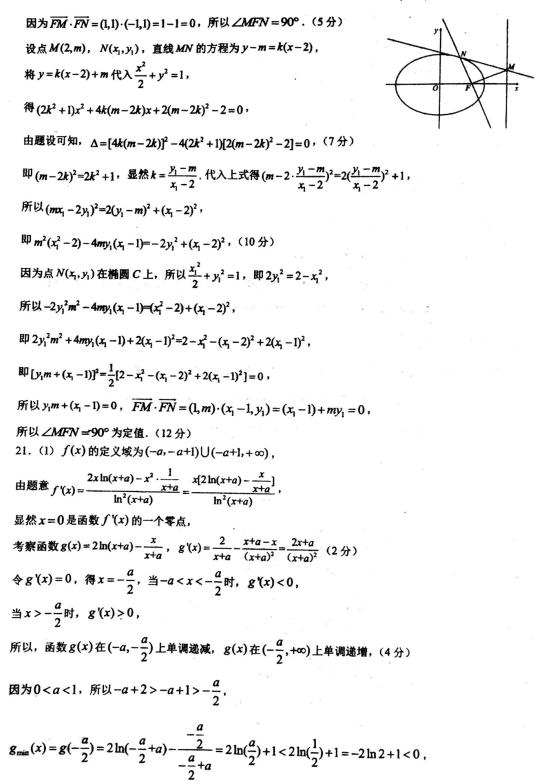 因为 $\overrightarrow{FM}\cdot\overrightarrow{FN}=(1,1)\cdot(-1,1)=1-1=0$，所以 ∠MFN=90°．（5 分）
y
N
M
O
F
x
设点 M(2,m)，N(x₁,y₁)，直线 MN 的方程为 y−m=k(x−2)，
将 y=k(x−2)+m 代入 $\frac{x^2}{2}+y^2=1$，
得 (2k²+1)x²+4k(m−2k)x+2(m−2k)²−2=0，
由题设可知，Δ=[4k(m−2k)]²−4(2k²+1)[2(m−2k)²−2]=0，（7 分）
即 (m−2k)²=2k²+1，显然 $k=\frac{y_1-m}{x_1-2}$．代入上式得 $(m-2\cdot\frac{y_1-m}{x_1-2})^2=2(\frac{y_1-m}{x_1-2})^2+1$，
所以 (mx₁−2y₁)²=2(y₁−m)²+(x₁−2)²，
即 m²(x₁²−2)−4my₁(x₁−1)=−2y₁²+(x₁−2)²，（10 分）
因为点 N(x₁,y₁) 在椭圆 C 上，所以 $\frac{x_1^2}{2}+y_1^2=1$，即 2y₁²=2−x₁²，
所以 −2y₁²m²−4my₁(x₁−1)=(x₁²−2)+(x₁−2)²，
即 2y₁²m²+4my₁(x₁−1)+2(x₁−1)²=2−x₁²−(x₁−2)²+2(x₁−1)²，
即 $[y_1m+(x_1-1)]^2=\frac{1}{2}[2-x_1^2-(x_1-2)^2+2(x_1-1)^2]=0$，
所以 y₁m+(x₁−1)=0，$\overrightarrow{FM}\cdot\overrightarrow{FN}=(1,m)\cdot(x_1-1,y_1)=(x_1-1)+my_1=0$，
所以 ∠MFN=90° 为定值．（12 分）
21．（1）f(x) 的定义域为 (−a,−a+1)∪(−a+1,+∞)，
由题意 $f'(x)=\frac{2x\ln(x+a)-x^2\cdot\frac{1}{x+a}}{\ln^2(x+a)}=\frac{x[2\ln(x+a)-\frac{x}{x+a}]}{\ln^2(x+a)}$，
显然 x=0 是函数 f'(x) 的一个零点，
考察函数 $g(x)=2\ln(x+a)-\frac{x}{x+a}$，$g'(x)=\frac{2}{x+a}-\frac{x+a-x}{(x+a)^2}=\frac{2x+a}{(x+a)^2}$（2 分）
令 g'(x)=0，得 $x=-\frac{a}{2}$，当 $-a<x<-\frac{a}{2}$ 时，g'(x)<0，
当 $x>-\frac{a}{2}$ 时，g'(x)>0，
所以，函数 g(x) 在 $(-a,-\frac{a}{2})$ 上单调递减，g(x) 在 $(-\frac{a}{2},+\infty)$ 上单调递增，（4 分）
因为 0<a<1，所以 $-a+2>-a+1>-\frac{a}{2}$，
$g_{min}(x)=g(-\frac{a}{2})=2\ln(-\frac{a}{2}+a)-\frac{-\frac{a}{2}}{-\frac{a}{2}+a}=2\ln(\frac{a}{2})+1<2\ln(\frac{1}{2})+1=-2\ln2+1<0$，